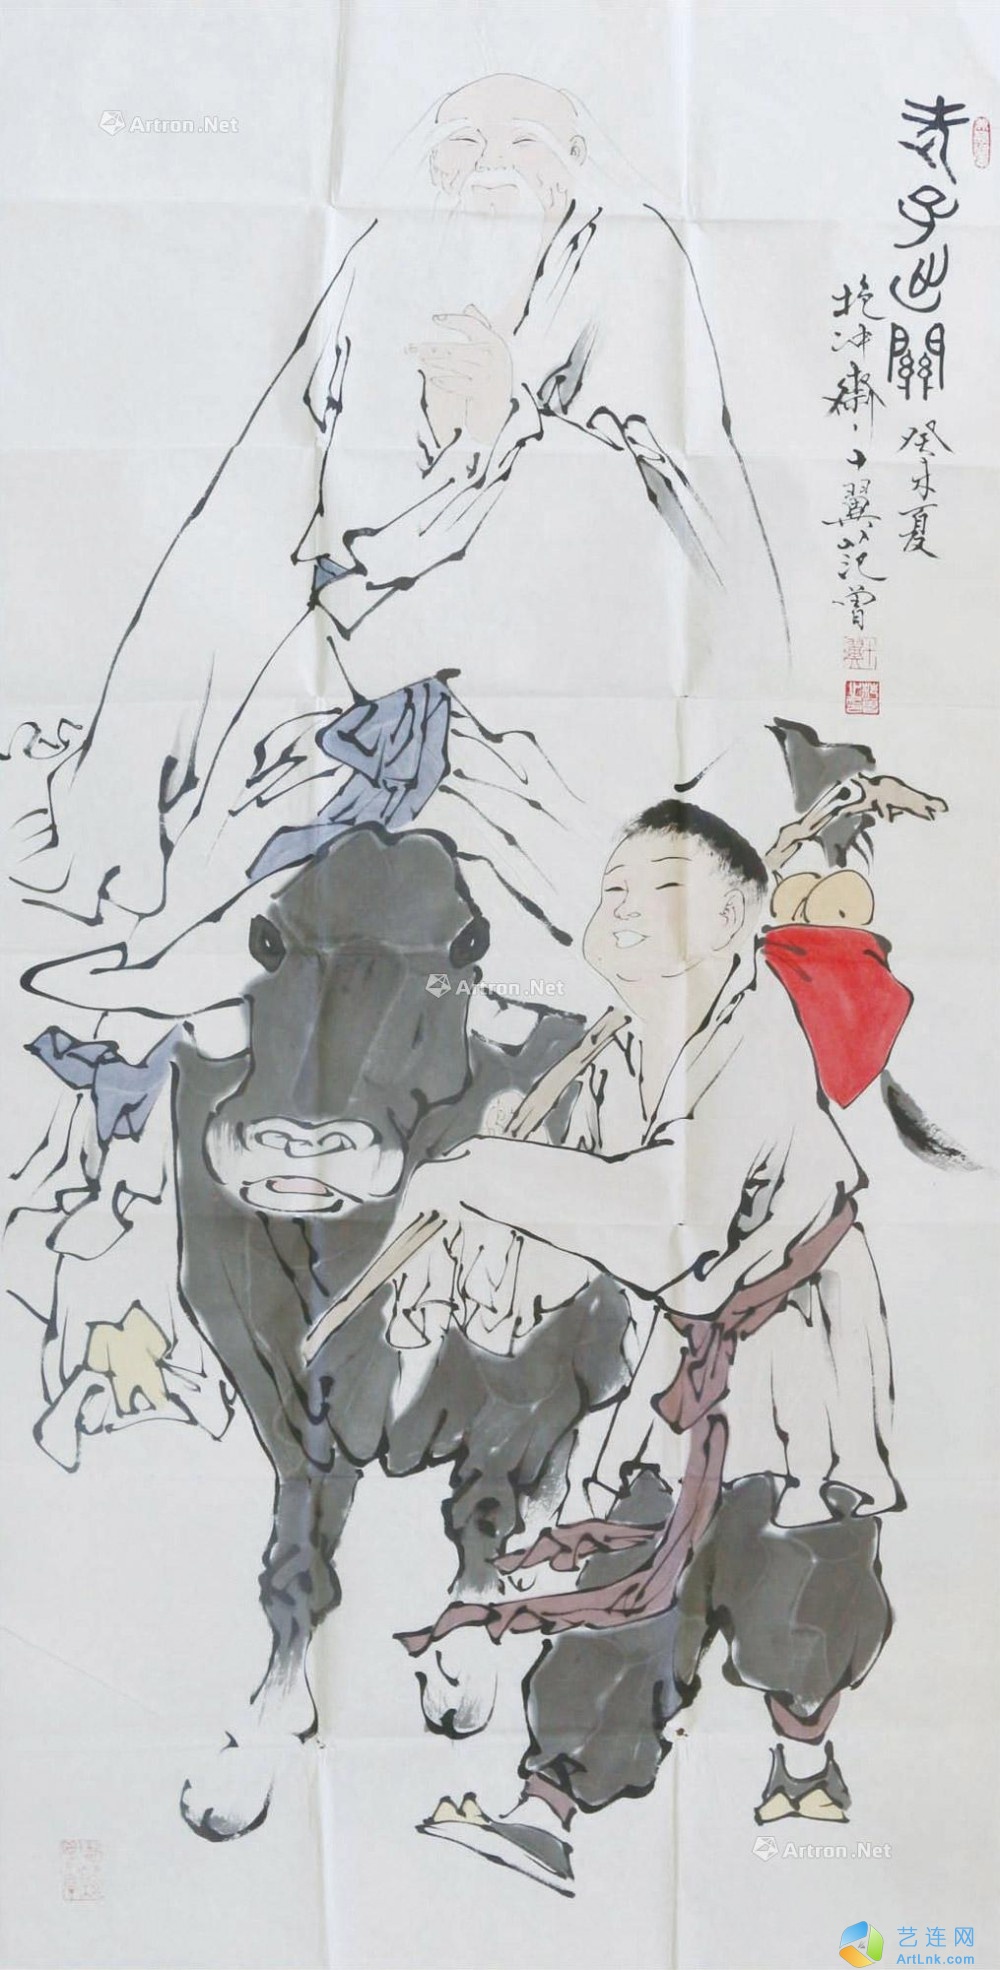 老子出關
癸未夏
抱冲齋十翼范曾
Artron.Net
Artron.Net
Artron.Net
艺连网
ArtLnk.com